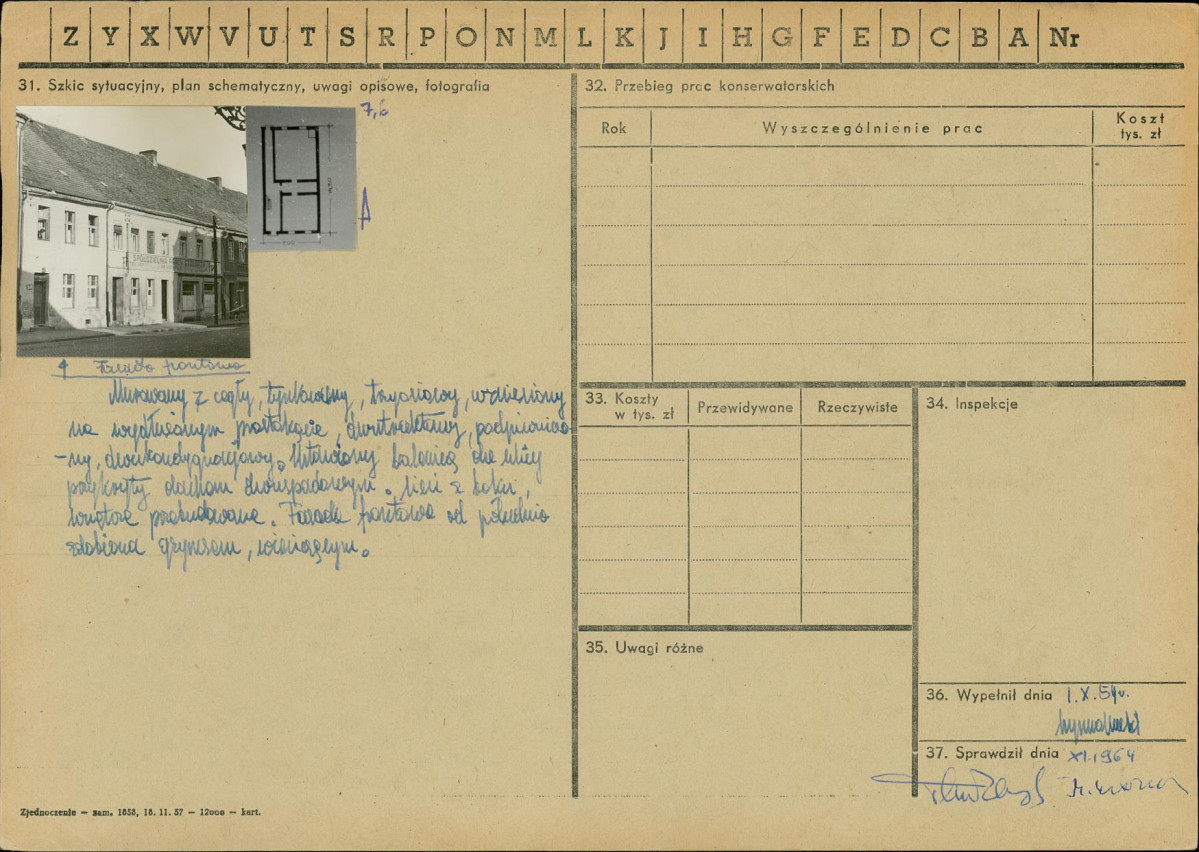 Z Y X W V U T S R P O N M L K J I H G F E D C B A Nr
31. Szkic sytuacyjny, plan schematyczny, uwagi opisowe, fotografia
7,6
A
Fasada frontowa
Murowany z cegły, tynkowany, trzyosiowy, wzniesiony
na wydłużonym prostokącie, dwutraktowy, podpiwniczo
-ny, dwukondygnacjowy. Ustawiony kalenicą do ulicy
przykryty dachem dwuspadowym. Sień z boku,
wnętrze przebudowane. Fasada frontowa od południa
zdobiona gzymsem, wieńczącym.
Zjednoczenie — zam. 1858, 18. 11. 57 — 12000 — kart.
32. Przebieg prac konserwatorskich
Rok
Wyszczególnienie prac
Koszt
tys. zł
33. Koszty
w tys. zł
Przewidywane
Rzeczywiste
34. Inspekcje
35. Uwagi różne
36. Wypełnił dnia 1.X.59r.
37. Sprawdził dnia XI.1964